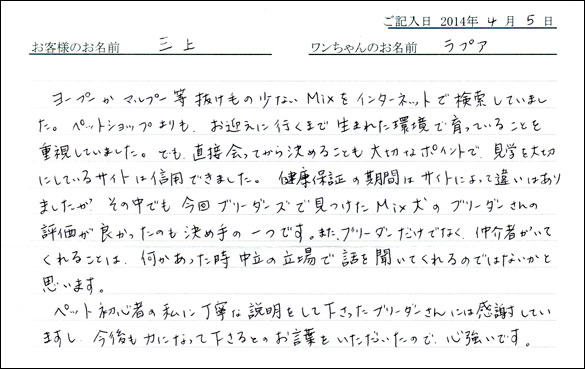 ご記入日 2014年 4 月 5 日
お客様のお名前 三上 ワンちゃんのお名前 ラプア
ヨープーかマルプー等抜けもの少ないMixをインターネットで検索していまし
た。ペットショップよりも、お迎えに行くまで生まれた環境で育っていることを
重視していました。でも、直接会ってから決めることも大切なポイントで、見学を大切
にしているサイトは信用できました。健康保証の期間はサイトによって違いはあり
ましたが、その中でも今回ブリーダーズで見つけたMix犬のブリーダーさんの
評価が良かったのも決め手の一つです。また、ブリーダーだけでなく、仲介者がいて
くれることは、何かあった時中立の立場で話を聞いてくれるのではないかと
思います。
ペット初心者の私に丁寧な説明をして下さったブリーダーさんには感謝してい
ますし、今後も力になって下さるとのお言葉をいただいたので、心強いです。